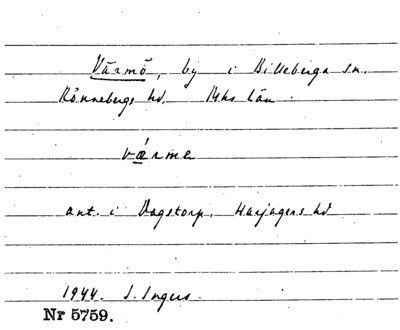 Värmö, by i Billeberga sn.
Rönnebergs hd. Mhs län.
vǽrmə
ant. i Dagstorp, Harjagers hd
1944. I. Ingers.
Nr 5759.